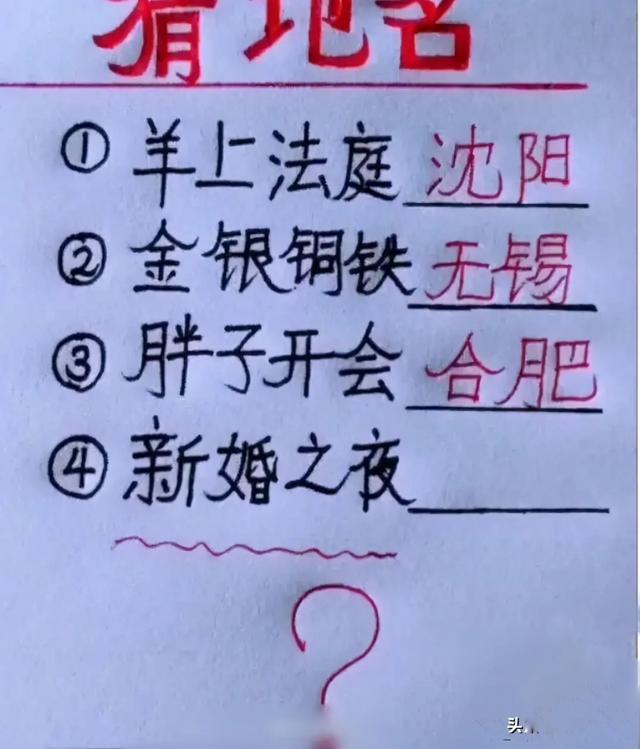 猜地名
① 羊上法庭 沈阳
② 金银铜铁 无锡
③ 胖子开会 合肥
④ 新婚之夜
?
头